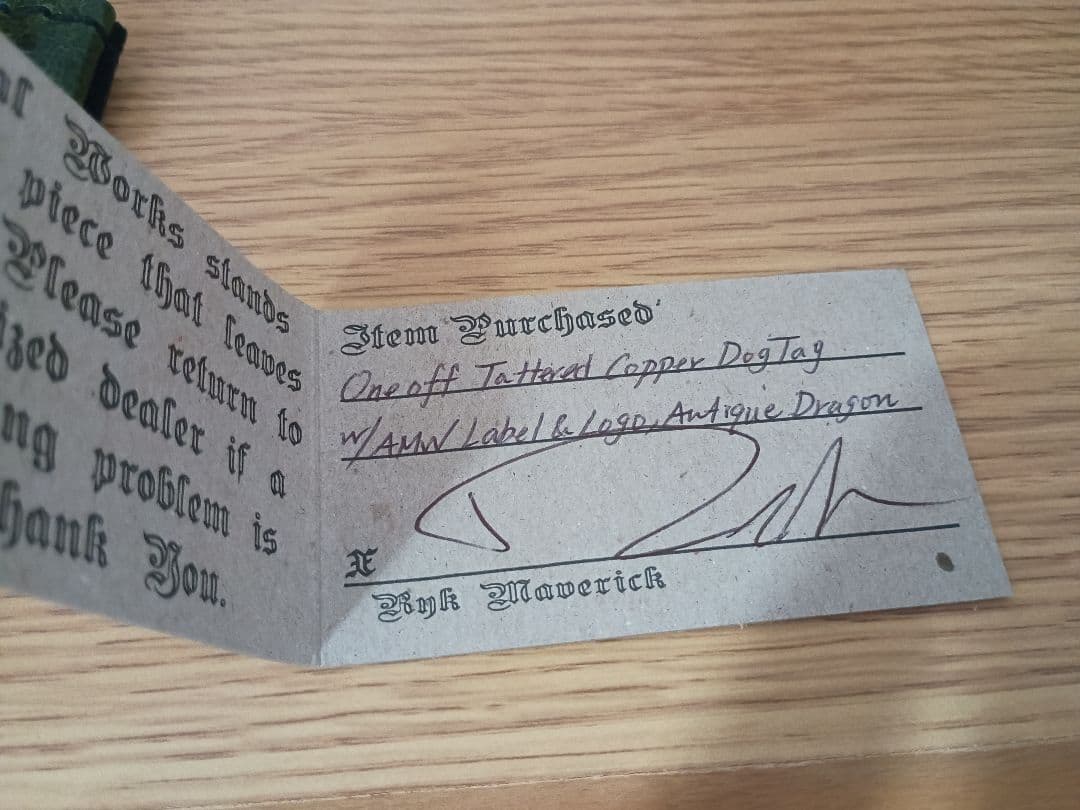 Works stands
piece that leaves
Please return to
dealer if a
problem is
You.
Item Purchased
One off Tattered Copper Dog Tag
w/ AMW Label & Logo, Antique Dragon
X
Ryk Maverick